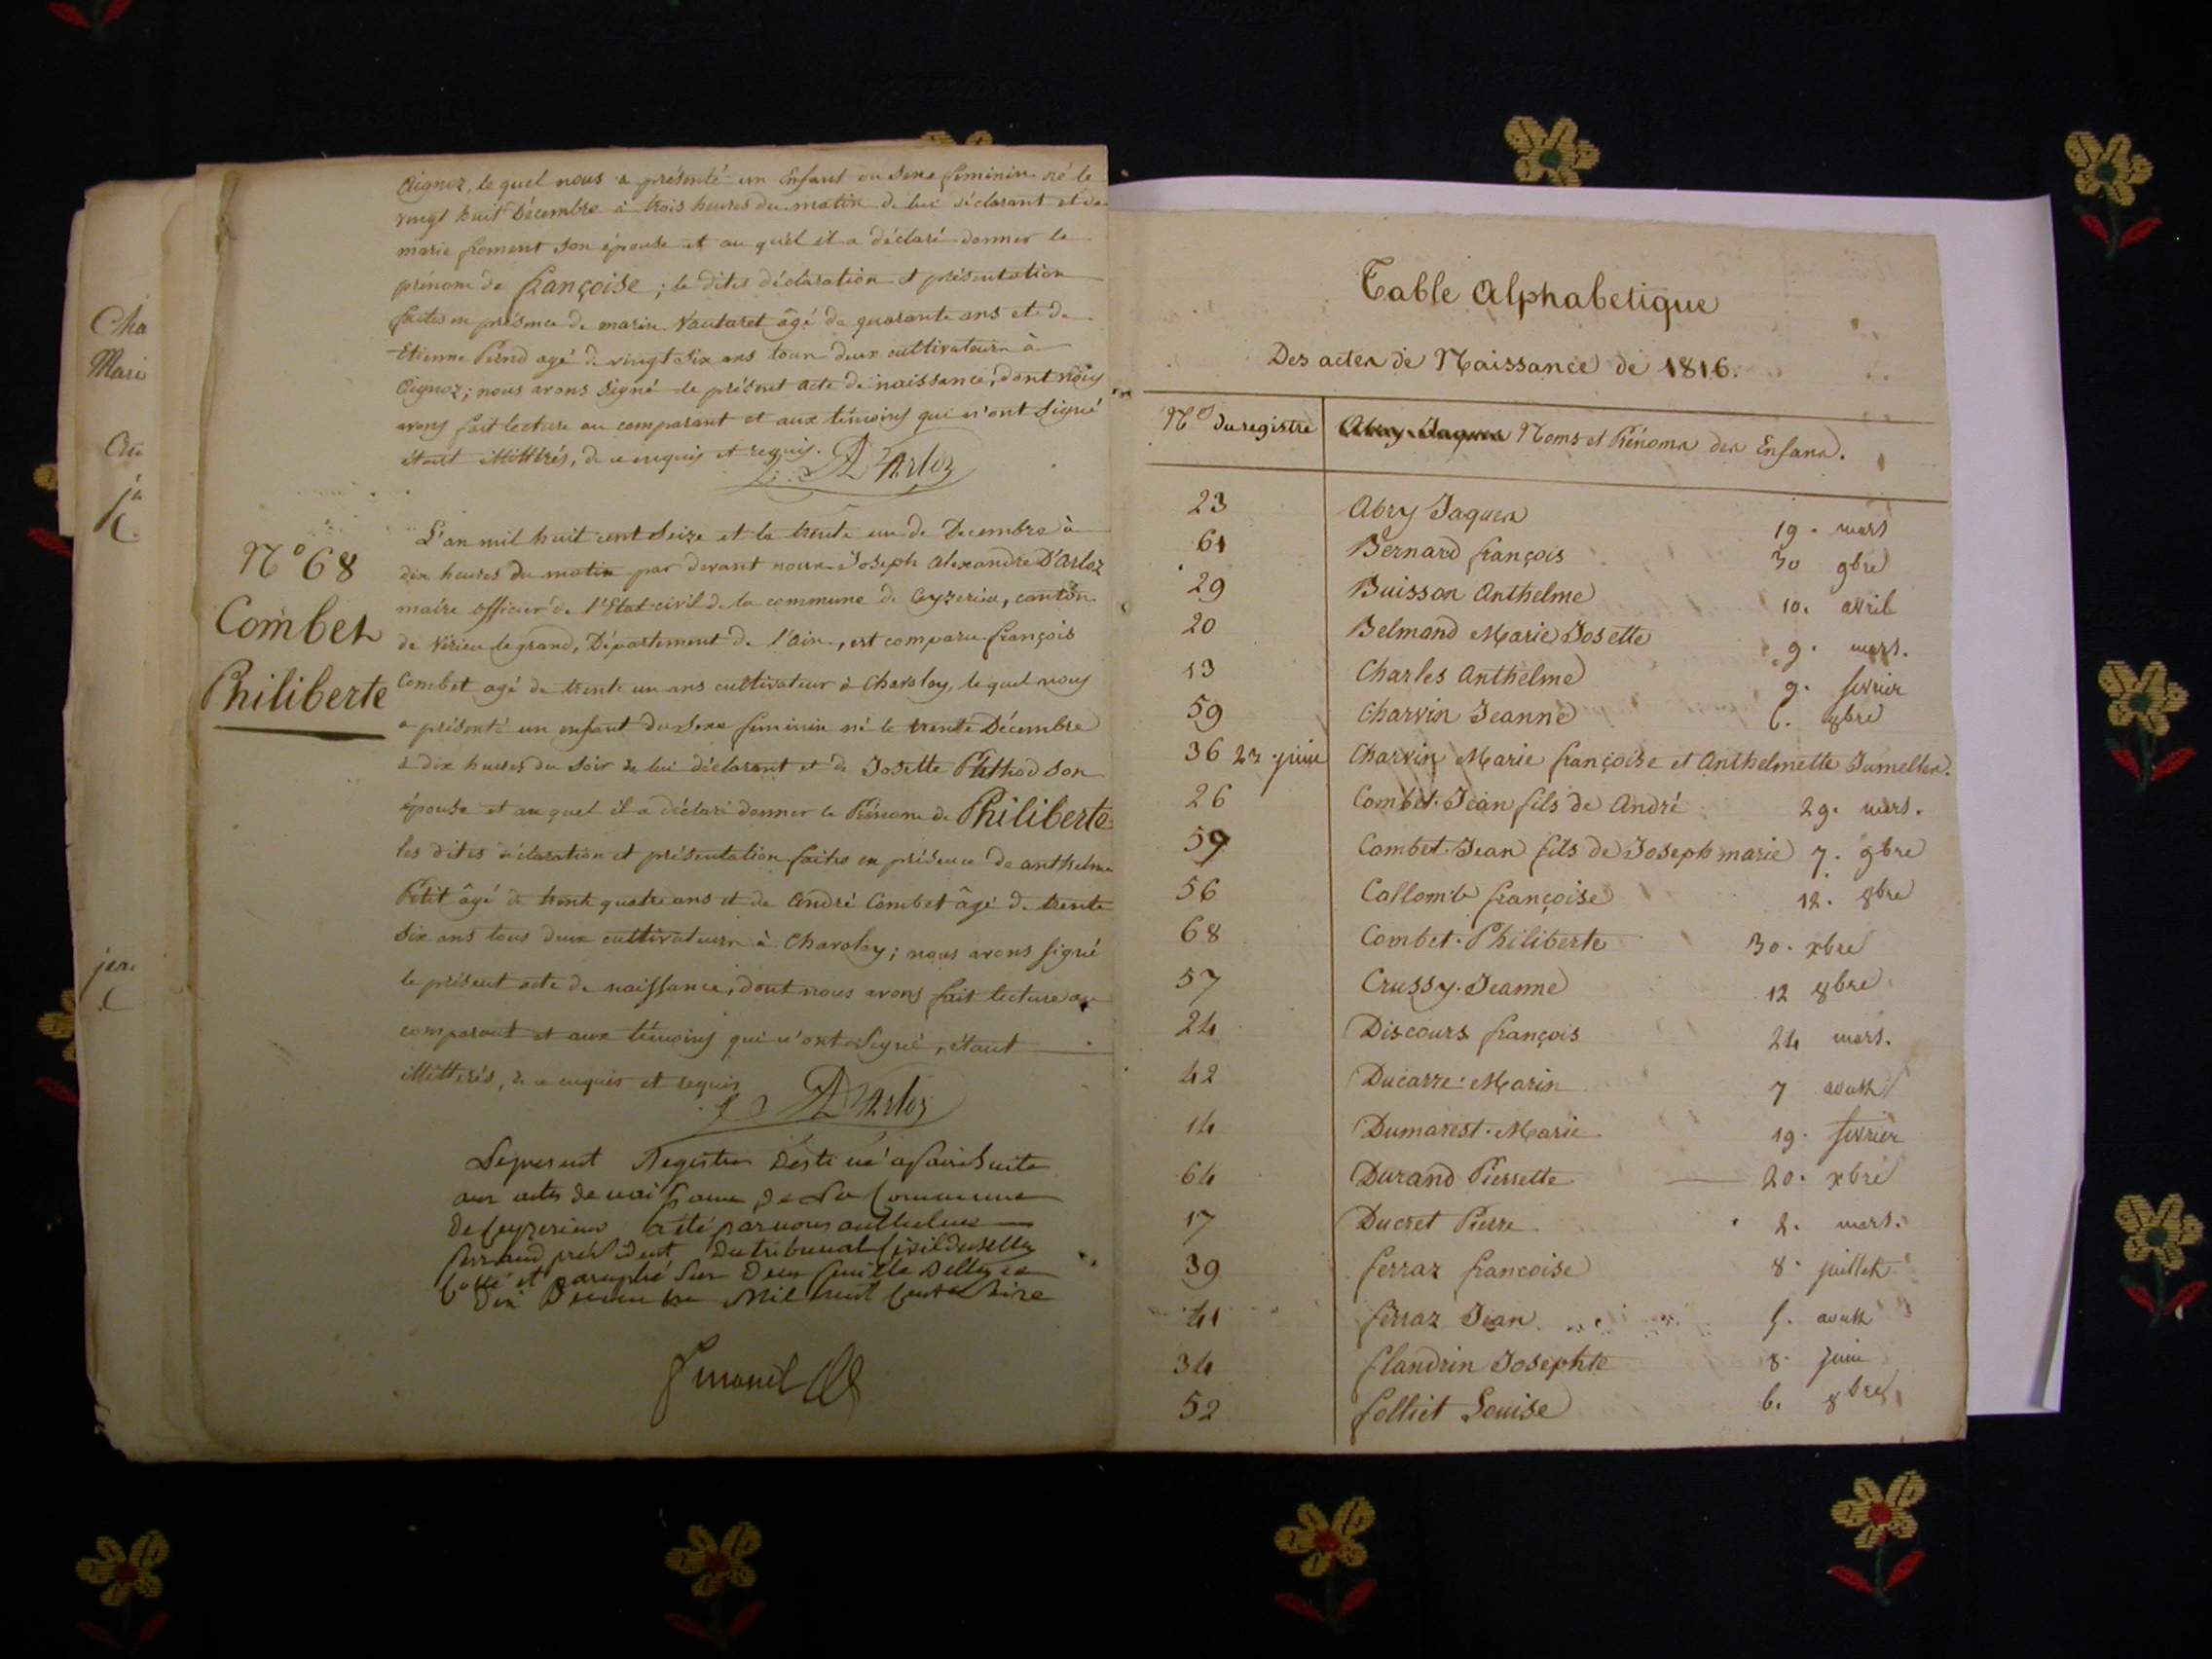 Cha
Mari
jea
aignoz, le quel nous a présenté un Enfant du Sexe feminin né le
vingt huit Décembre à trois heures du matin de lui déclarant et de
marie froment son épouse et au quel il a déclaré donner le
prénom de françoise ; le dites déclaration et présentation
faites en présence de marin Vautaret âgé de quarante ans et de
Etienne agé de vingt Six ans tous deux cultivateurs à
Aignoz ; nous avons signé le présent acte de naissance, dont nous
avons fait lecture au comparant et aux témoins qui n'ont signé
étant illittérés, de ce enquis et requis.
D'Arloz
N° 68
Combet
Philiberte
L'an mil huit cent Seize et la trente un de Decembre à
dix heures du matin par devant nous Joseph Alexandre D'Arloz
maire officier de l'Etat civil de la commune de Ceyzerieu, canton
de Virieu le grand, Département de l'Ain, est comparu françois
Combet agé de trente un ans cultivateur à Chavoley, le quel nous
a présenté un enfant du Sexe feminin né le trente Décembre
à dix heures du soir de lui déclarant et de Josette Pethod son
épouse et au quel il a déclaré donner le Prénom de Philiberte
les dites déclaration et présentation faites en présence de anthelme
Petit âgé de trente quatre ans et de André Combet âgé de trente
Six ans tous deux cultivateurs à Chavoley ; nous avons signé
le présent acte de naissance, dont nous avons fait lecture au
comparant et aux témoins qui n'ont Signé, étant
illittérés, de ce enquis et requis
D'Arloz
Le present Registre Destiné a faire Suite
aux actes de naissance de La Commune
de Ceyzerieu a été par nous anthelme
president Du tribunal Civil de
Cotté et paraphé Sur Deux feuille
Dix Decembre Mil huit Cent Seize
Table Alphabetique
Des actes de Naissance de 1816.
N° du registre Abry Jaques Noms et Prénoms des Enfans.
23 Abry Jaques 19. mars
61 Bernard françois 30 9bre
29 Buisson Anthelme 10. avril
20 Belmand Marie Josette 9. mars.
13 Charles Anthelme 9. fevrier
59 Charvin Jeanne 6. 9bre
36 23 juin Charvin Marie françoise et Anthelmette Jumelles.
26 Combet Jean fils de André 29. mars.
59 Combet Jean fils de Joseph marie 7. 9bre
56 Collomb françoise 12. 8bre
68 Combet Philiberte 30. xbre
57 Crussy Jeanne 12 8bre
24 Discours françois 24 mars.
42 Ducarre Marin 7 aoust
14 Dumarest Marie 19. fevrier
64 Durand Pierrette 20. xbre
17 Ducret Pierre 2. mars.
39 ferraz francoise 8. juillet
41 ferraz Jean 5. aoust
34 flandrin Josephte 8. juin
52 folliet Louise 6. 8bre